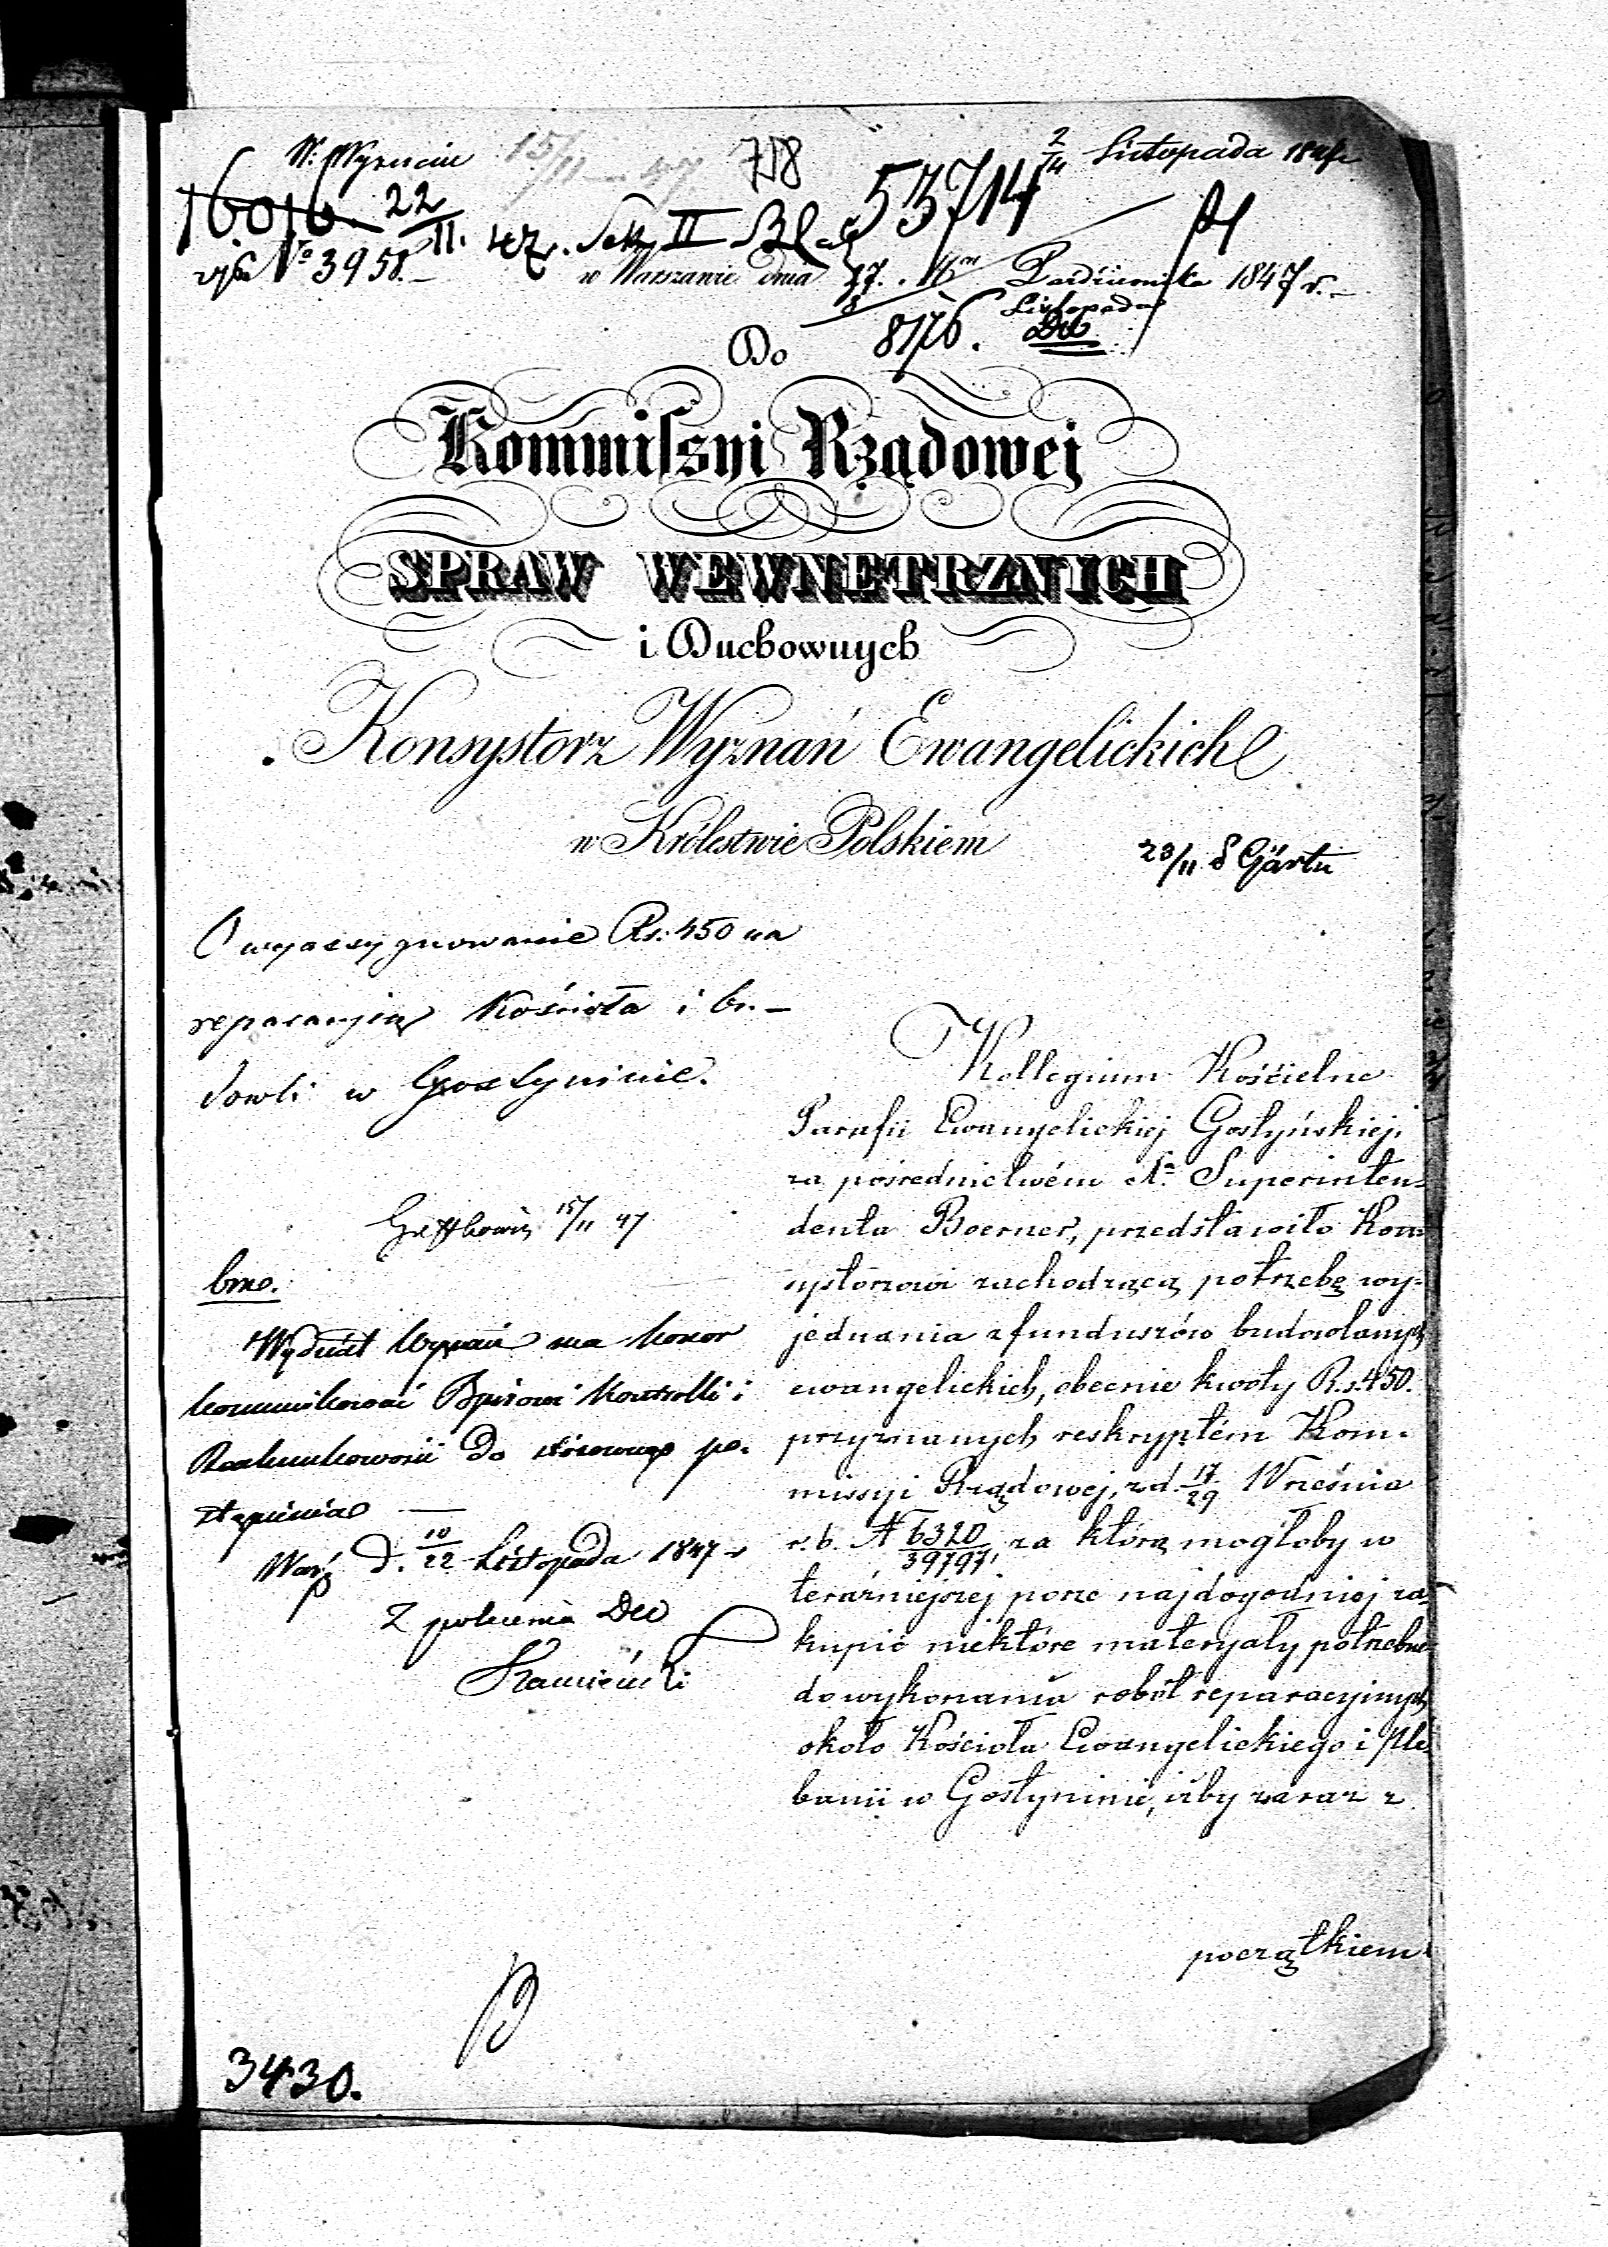 W. Wyznań 15/11 – 47 758 2/14 Listopada 1847
16016. 22/11. 47. Sek II 53714
Nº 3958.– w Warszawie dnia 27. Października 1847 r.–
Listopada
8176.
Do
Kommissyi Rządowej
SPRAW WEWNĘTRZNYCH
i Duchownych
Konsystorz Wyznań Ewangelickich
w Królestwie Polskiem
23/11
O wyassygnowanie Rs. 450 na
reparacyią Kościoła i bu–
dowli w Gostyninie.
15/11 47
bmo.
Wydział Wyznań ma honor
kommunikować Biurowi Kontrolli i
Rachunkowości do stósownego po-
stąpienia —
War. D. 10/22 Listopada 1847 r
Z polecenia
Kollegium Kościelne
Parafii Ewangelickiej Gostyńskiej,
za pośrednictwém Xa Superinten-
denta Boerner, przedstawiło Kon-
systorzowi zachodzącą potrzebę wy-
jednania z funduszów budowlanych
ewangelickich, obecnie kwoty R.s. 450.
przyznanych reskryptém Kom-
missyi Rządowej, z d. 17/29 Września
r. b. № 6320/39797, za którą mogłoby w
teraźniejszej porze najdogodniej za-
kupić niektóre materyały potrzebne
do wykonania robót reparacyjnych
około Kościoła Ewangelickiego i Ple-
banii w Gostyninie, iżby zaraz z
początkiem
3430.